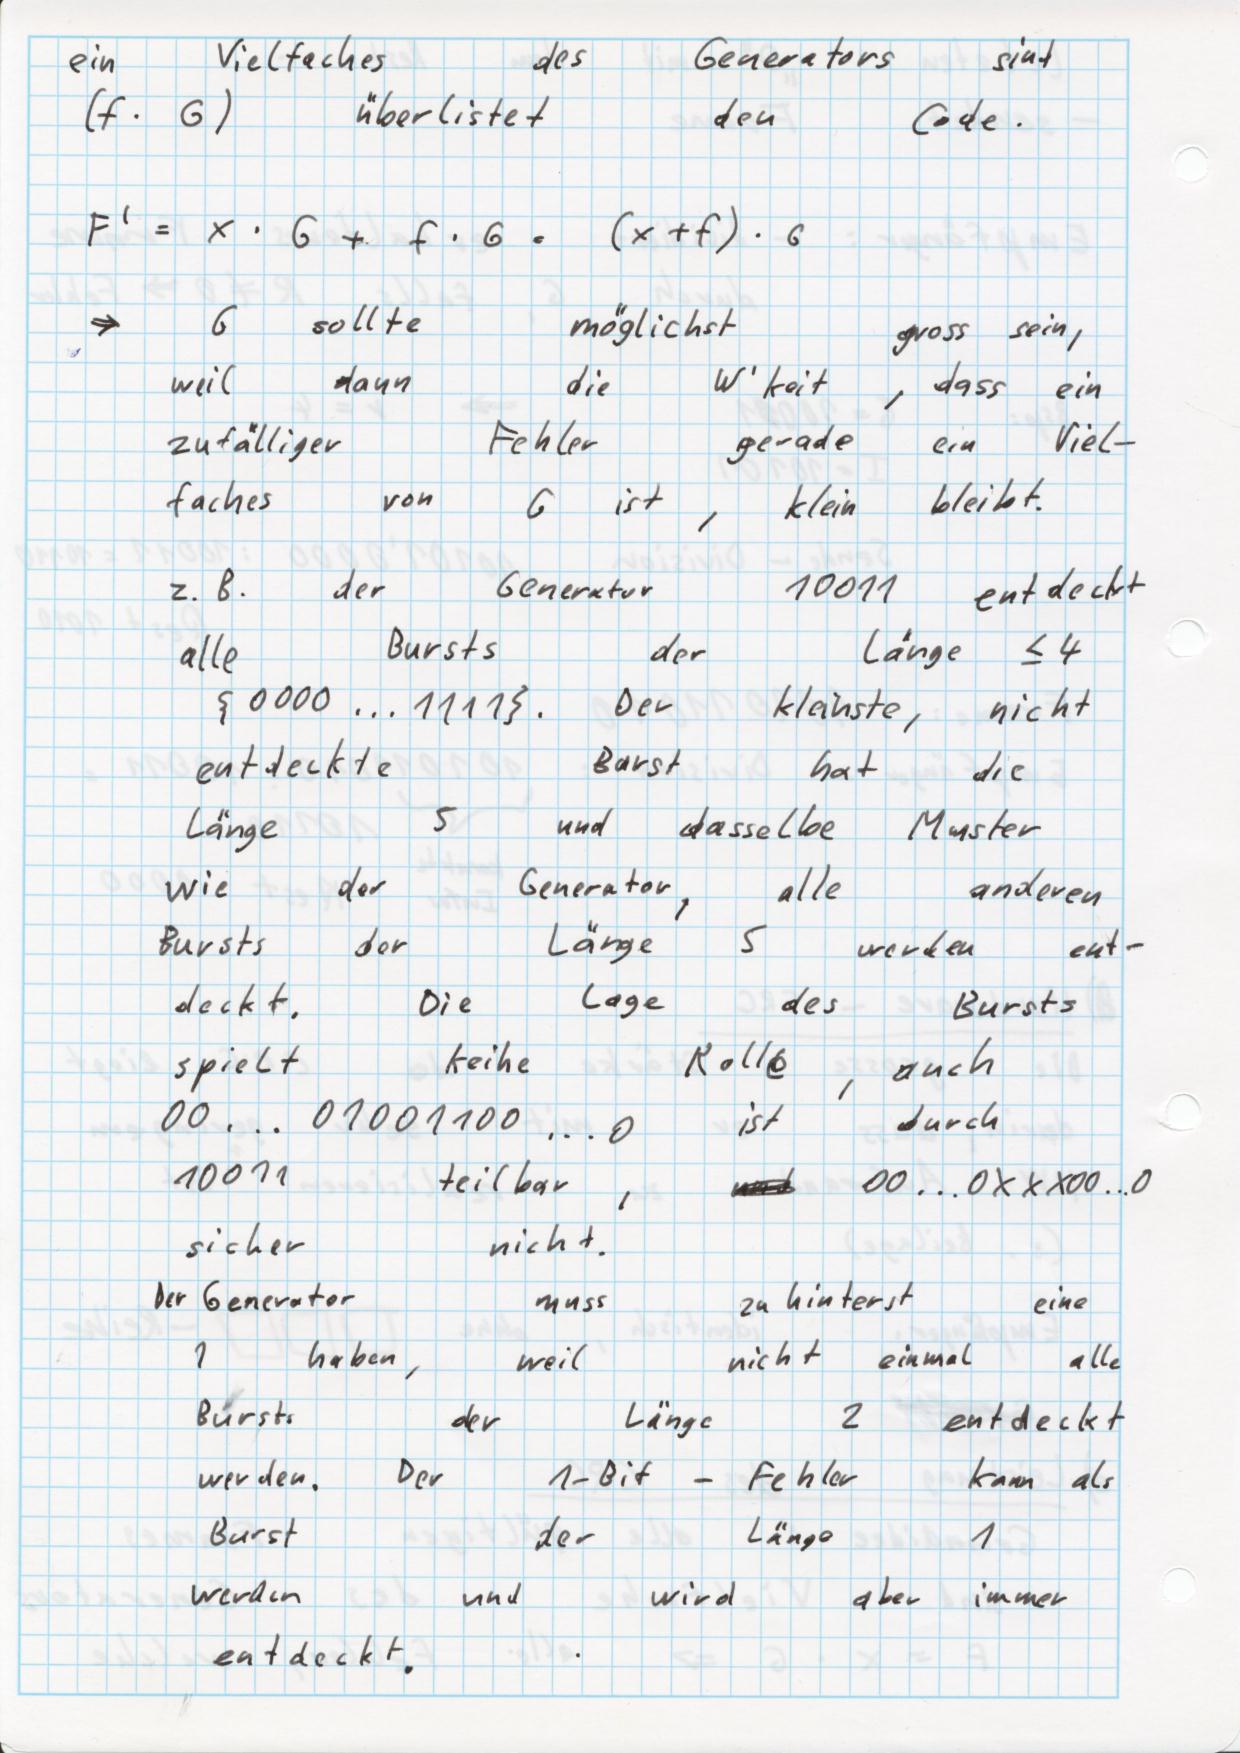 ein Vielfaches des Generators sint
(f. G) überlistet den Code.
F' = x · G + f · G = (x+f) · G
⇒ G sollte möglichst gross sein,
weil dann die W'keit, dass ein
zufälliger Fehler gerade ein Viel-
faches von G ist, klein bleibt.
z.B. der Generator 10011 entdeckt
alle Bursts der Länge ≤ 4
{0000 ... 1111}. Der kleinste, nicht
entdeckte Burst hat die
Länge 5 und dasselbe Muster
wie der Generator, alle anderen
Bursts der Länge 5 werden ent-
deckt. Die Lage des Bursts
spielt keine Rolle, auch
00... 01001100 ...0 ist durch
10011 teilbar, 00...0XXX00...0
sicher nicht.
Der Generator muss zuhinterst eine
1 haben, weil nicht einmal alle
Bursts der Länge 2 entdeckt
werden. Der 1-Bit-Fehler kann als
Burst der Länge 1
werden und wird aber immer
entdeckt.